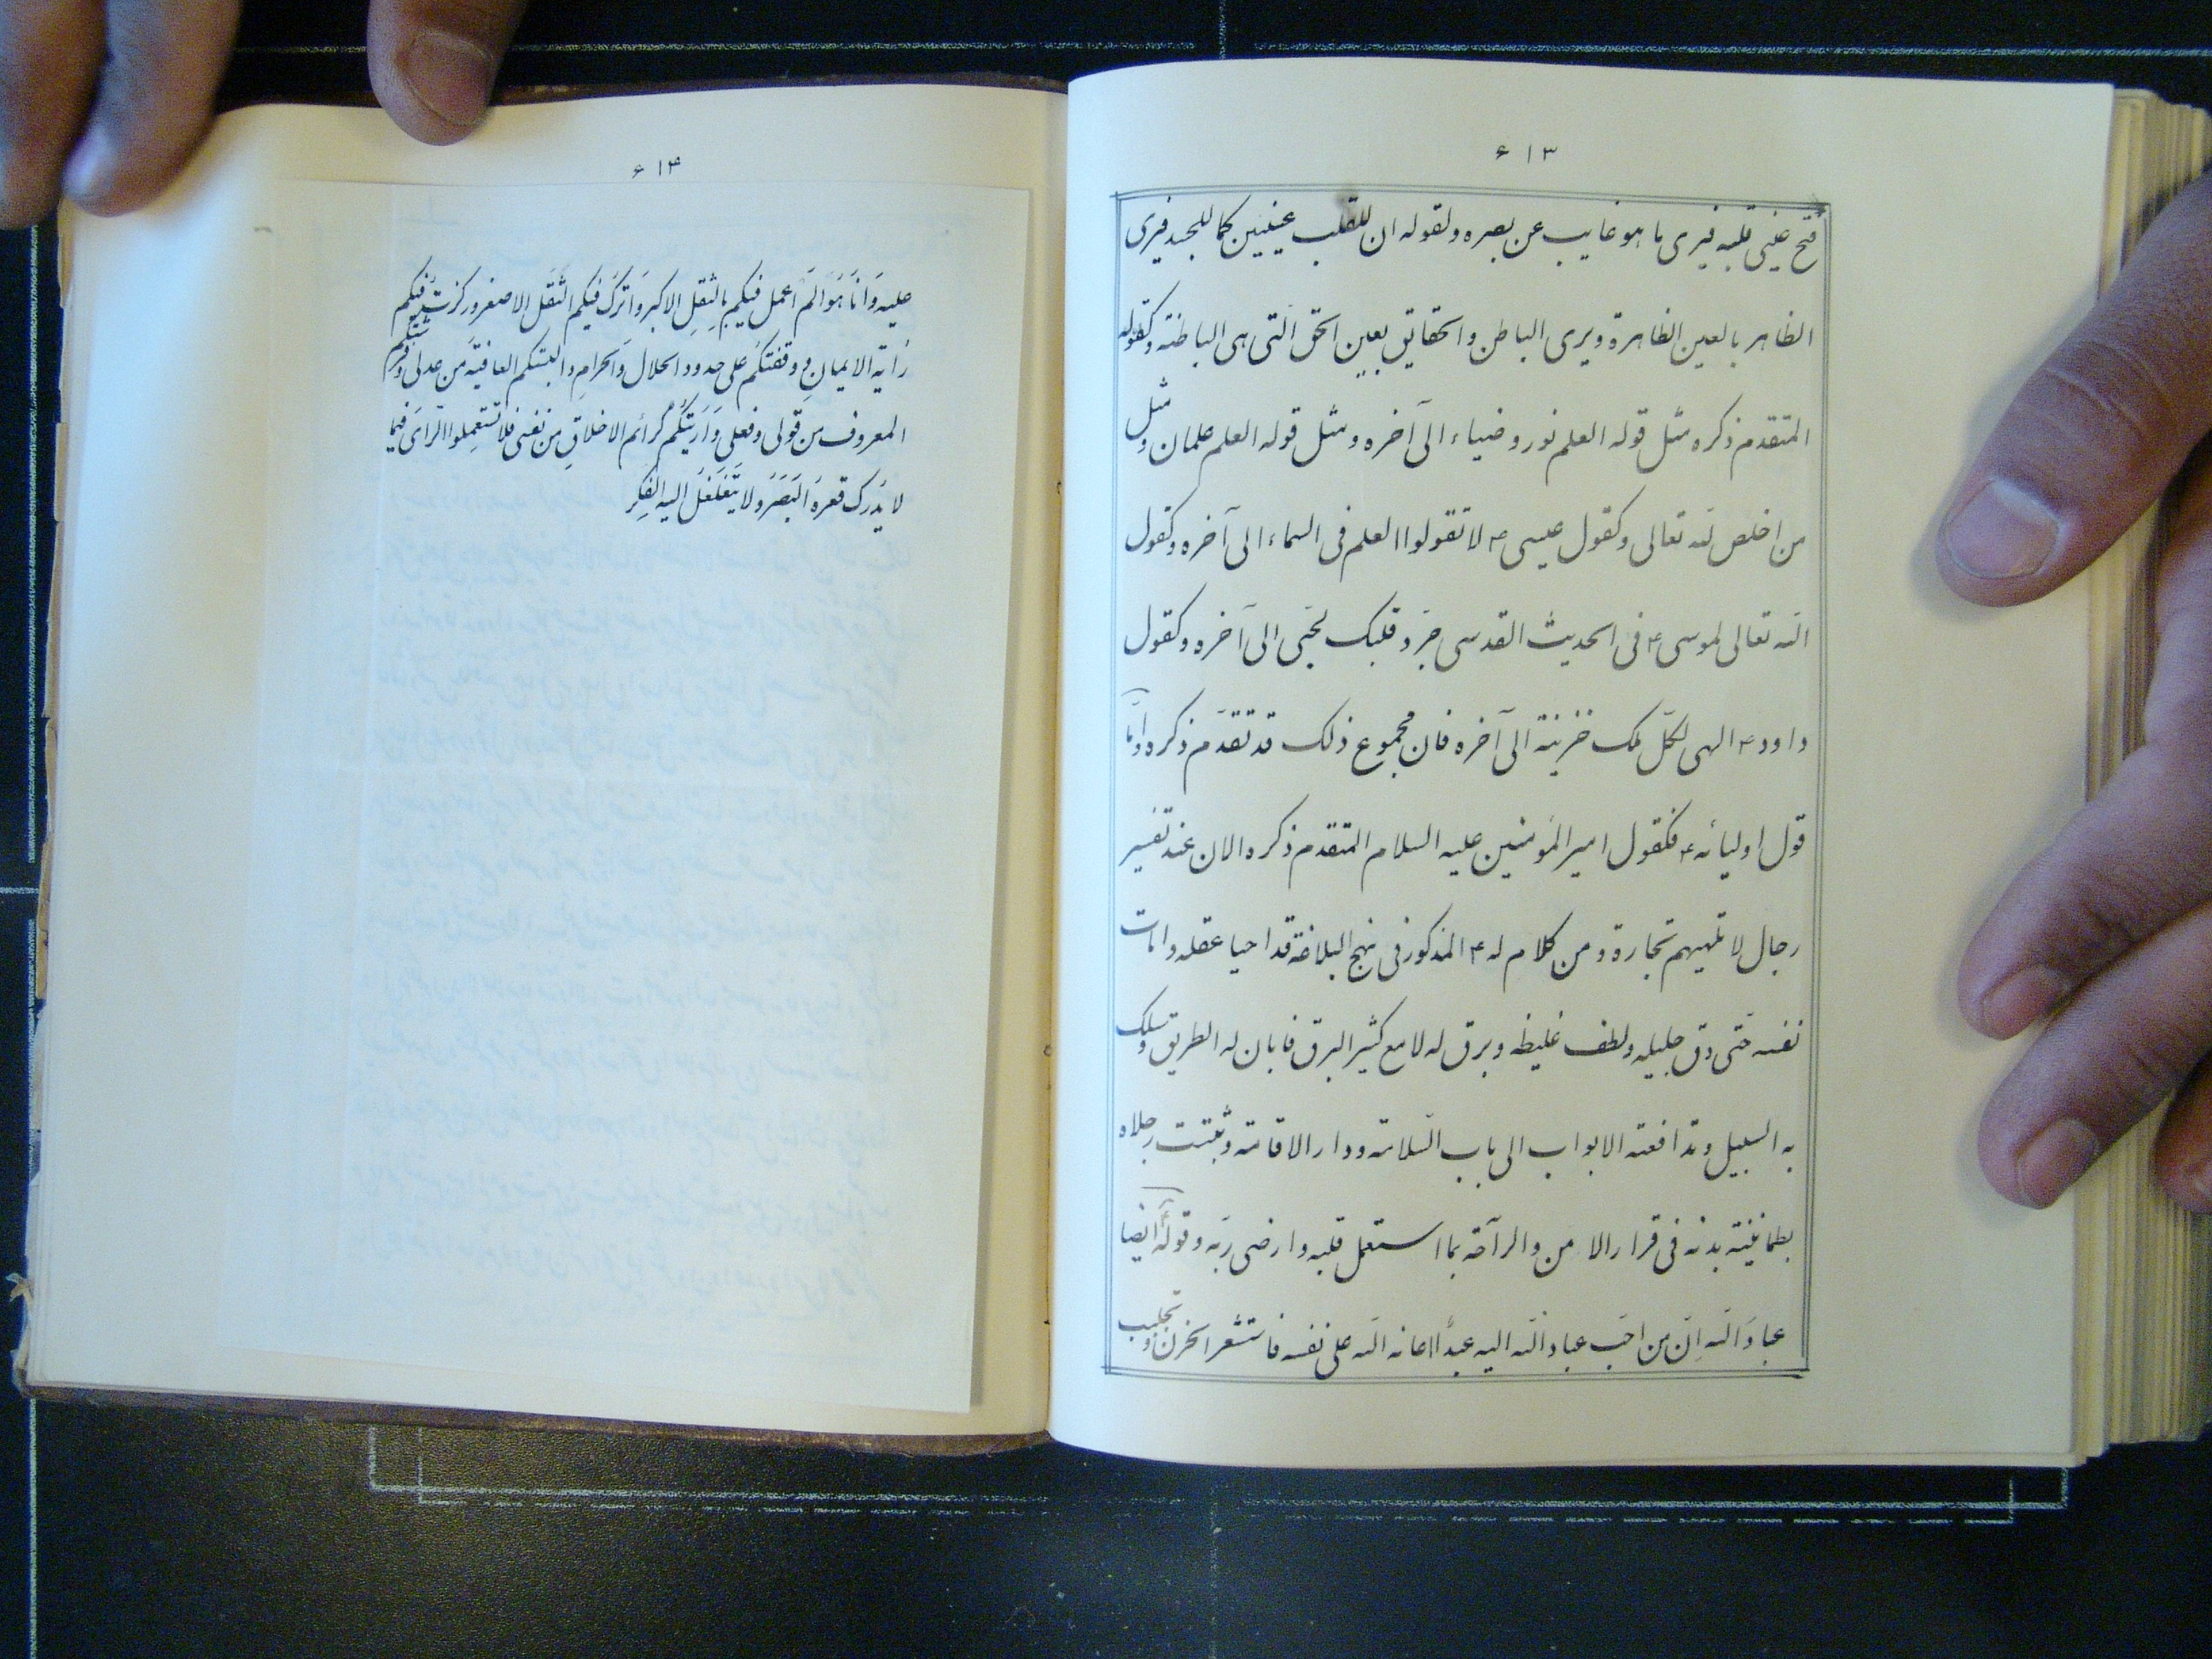 ۶۱۳
فتح عینی قلبه فیری ما هو غایب عن بصره ولقوله ان للقلب عینین کما للجسد فیری
الظاهر بالعین الظاهرة ویری الباطن والحقایق بعین الحق الّتی هی الباطنة وکقوله
المتقدم ذکره مثل قوله العلم نور وضیاء الی آخره ومثل قوله العلم علمان ومثل
من اخلص لله تعالی وکقول عیسی ۴ لا تقولوا العلم فی السماء الی آخره وکقول
الله تعالی لموسی ۴ فی الحدیث القدسی جرّد قلبک لحبّی الی آخره وکقول
داود ۴ الهی لکلّ ملک خزینة الی آخره فان مجموع ذلک قد تقدّم ذکره وامّا
قول اولیائه ۴ فکقول امیر المؤمنین علیه السلام المتقدم ذکره الان عند تفسیر
رجال لا تلهیهم تجارة ومن کلام له ۴ المذکور فی نهج البلاغة قد احیا عقله وامات
نفسه حتّی دق جلیله ولطف غلیظه وبرق له لامع کثیر البرق فابان له الطریق وسلک
به السبیل وتدافعته الابواب الی باب السّلامة ودار الاقامة وثبتت رجلاه
بطمانینة بدنه فی قرار الامن والرّاحة بما استعمل قلبه وارضی ربّه وقوله ۴ ایضا
عبادَ الله اِنّ من احَبّ عباد الله الیه عبدًا اعانه الله علی نفسه فاستشعر الحزن وتجلبب
۶۱۴
علیه وَاَنَا هُوَ اَلَم اَعمل فیکم بالثِقلِ الاکبر وَاَترک فیکم الثَقَل الاصغر ورکزت فیکم
رَایة الایمانِ ووقفتکم علی حدود الحلال وَالحَرامِ والبستکم العافیةَ من عدلی وفرشتکم
المعروف من قولی وفعلی وَاَرَیتُکُم کرائم الاخلاقِ من نفسی فلا تستعمِلوا الرایَ فیما
لا یُدرک قعرهَ البَصَرُ ولا یَتَغَلغَلُ الیه الفِکر